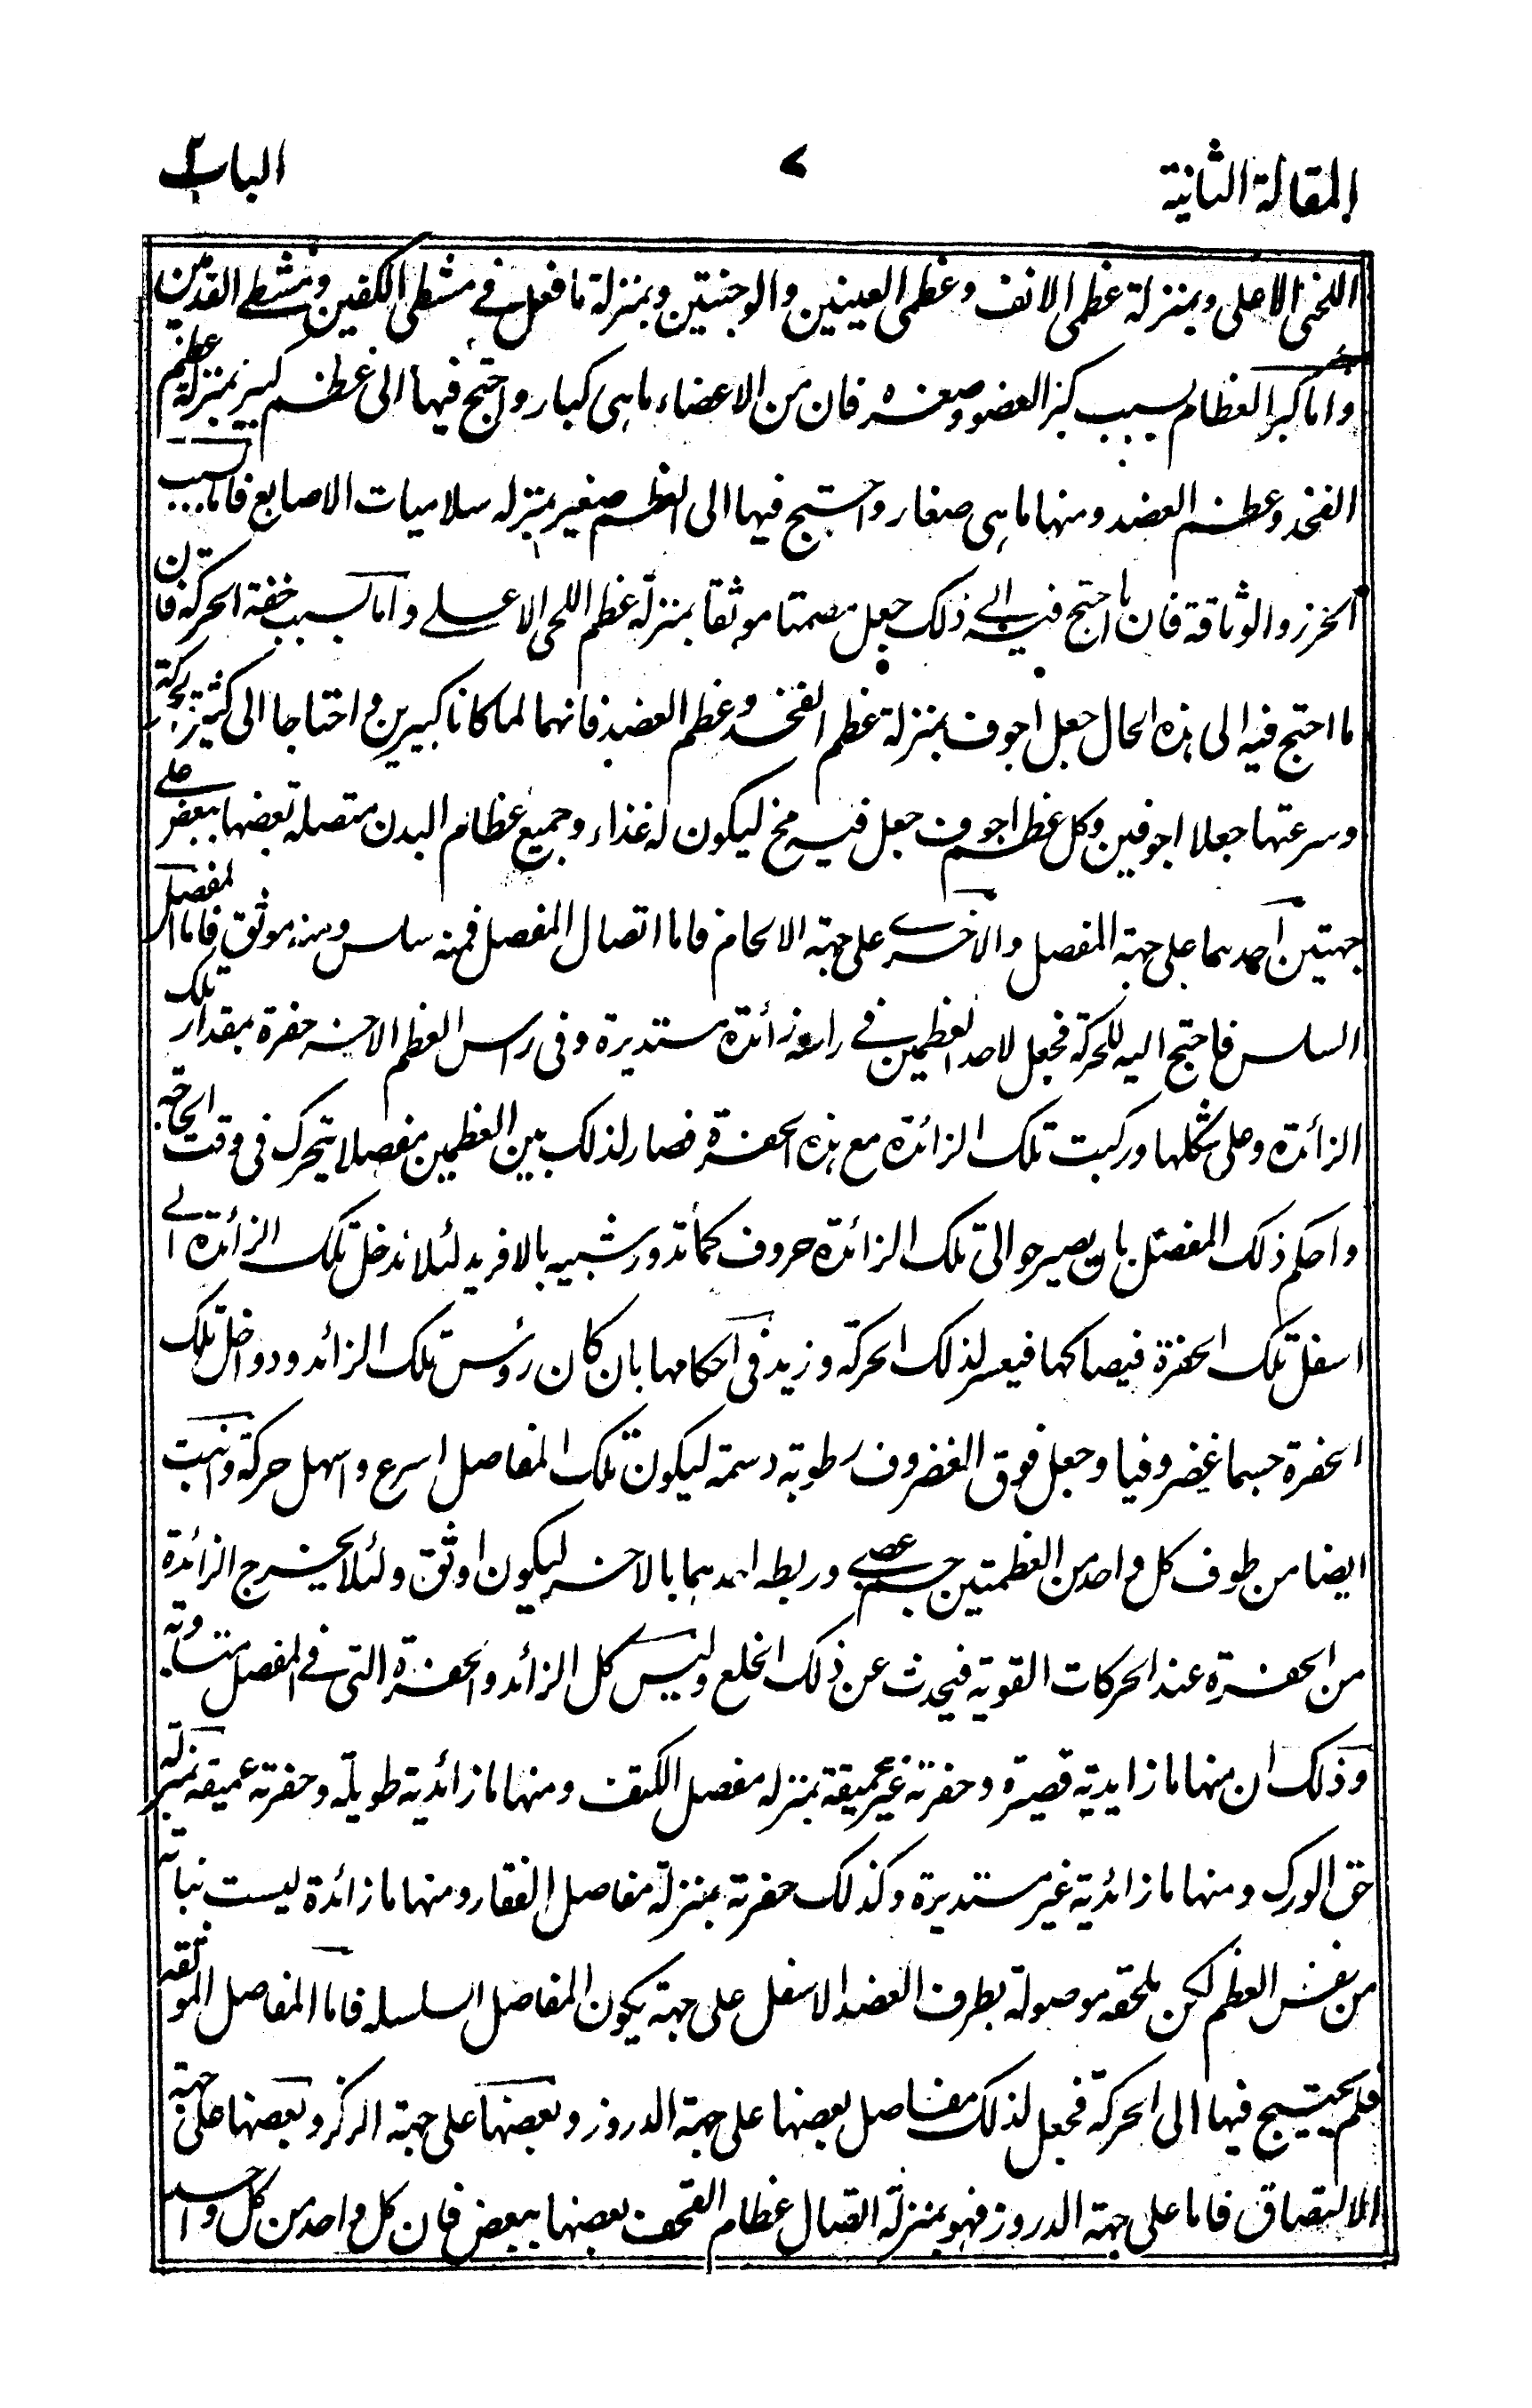 المقالة الثانية
٧
الباب ٢
اللحى الاعلى وبمنزلة عظمى الانف وعظمى العينين والوجنتين وبمنزلة ما فعل فى مشطى الكفين ومشطى القدمين
واما كبر العظام بسبب كبر العضو وصغره فان من الاعضاء ما هى كبار واحتيج فيها الى عظم كبير بمنزلة عظم
الفخذ وعظم العضد ومنها ما هى صغار واحتيج فيها الى العظم صغير بمنزله سلاميات الاصابع فاما بسبب
الخرز والوثاقة فان ما احتيج فيه الى ذلك جعل مصمتا موثقا بمنزلة عظم اللحى الاعلى واما بسبب خفة الحركة فان
ما احتيج فيه الى هذه الحال جعل اجوف بمنزلة عظم الفخذ وعظم العضد فانهما لما كانا كبيرين واحتاجا الى كثيرة حركة
وسرعتها جعلا اجوفين وكل عظم اجوف جعل فيه مخ ليكون له غذاء وجميع عظام البدن متصله بعضها ببعض على
جهتين احدهما على جهة المفصل والاخرى على جهة الالحام فاما اتصال المفصل فمنه سلس ومنه موثق فاما المفصل
السلس فاحتيج اليه للحركة فجعل لاحد العظمين فى راسه زائدة مستديرة وفى راس العظم الاخر حفرة بمقدار تلك
الزائدة وعلى شكلها وركبت تلك الزائدة مع هذه الحفرة فصار لذلك بين العظمين مفصلا يتحرك فى وقت الحاجة
واحكم ذلك المفصل بان يصير حوالى تلك الزائدة حروف كما تدور شبيه بالافريد لئلا تدخل تلك الزائدة الى
اسفل تلك الحفرة فيصاكها فيعسر لذلك الحركة وزيد فى احكامها بان كان رؤس تلك الزائد ودواخل تلك
الحفرة جسما غضروفيا وجعل فوق الغضروف رطوبة دسمة ليكون تلك المفاصل اسرع واسهل حركة وانبت
ايضا من طوف كل واحد من العظمتين جسم عصبى وربطه احدهما بالاخر ليكون اوثق ولئلا يخرج الزائدة
من الحفرة عند الحركات القوية فيحدث عن ذلك الخلع وليس كل الزائد والحفرة التى فى المفصل متساوية
وذلك ان منها ما زايديه قصيرة وحفرته غير عميقة بمنزله مفصل الكتف ومنها ما زائديه طويلة وحفرته عميقه بمنزلة
حق الورك ومنها ما زائديه غير مستديرة وكذلك حفرته بمنزلة مفاصل الفقار ومنها ما زائدة ليست نباته
من نفس العظم لكن ملحقه موصولة بطرف العضد الاسفل على جهة يكون المفاصل السلسله فاما المفاصل الموثقة
فلم يحتيج فيها الى الحركة فجعل لذلك مفاصل بعضها على جهة الدروز وبعضها على جهة الركز وبعضها على جهة
الالتصاق فاما على جهة الدروز فهو بمنزلة اتصال عظام القحف بعضها ببعض فان كل واحد من كل واحد